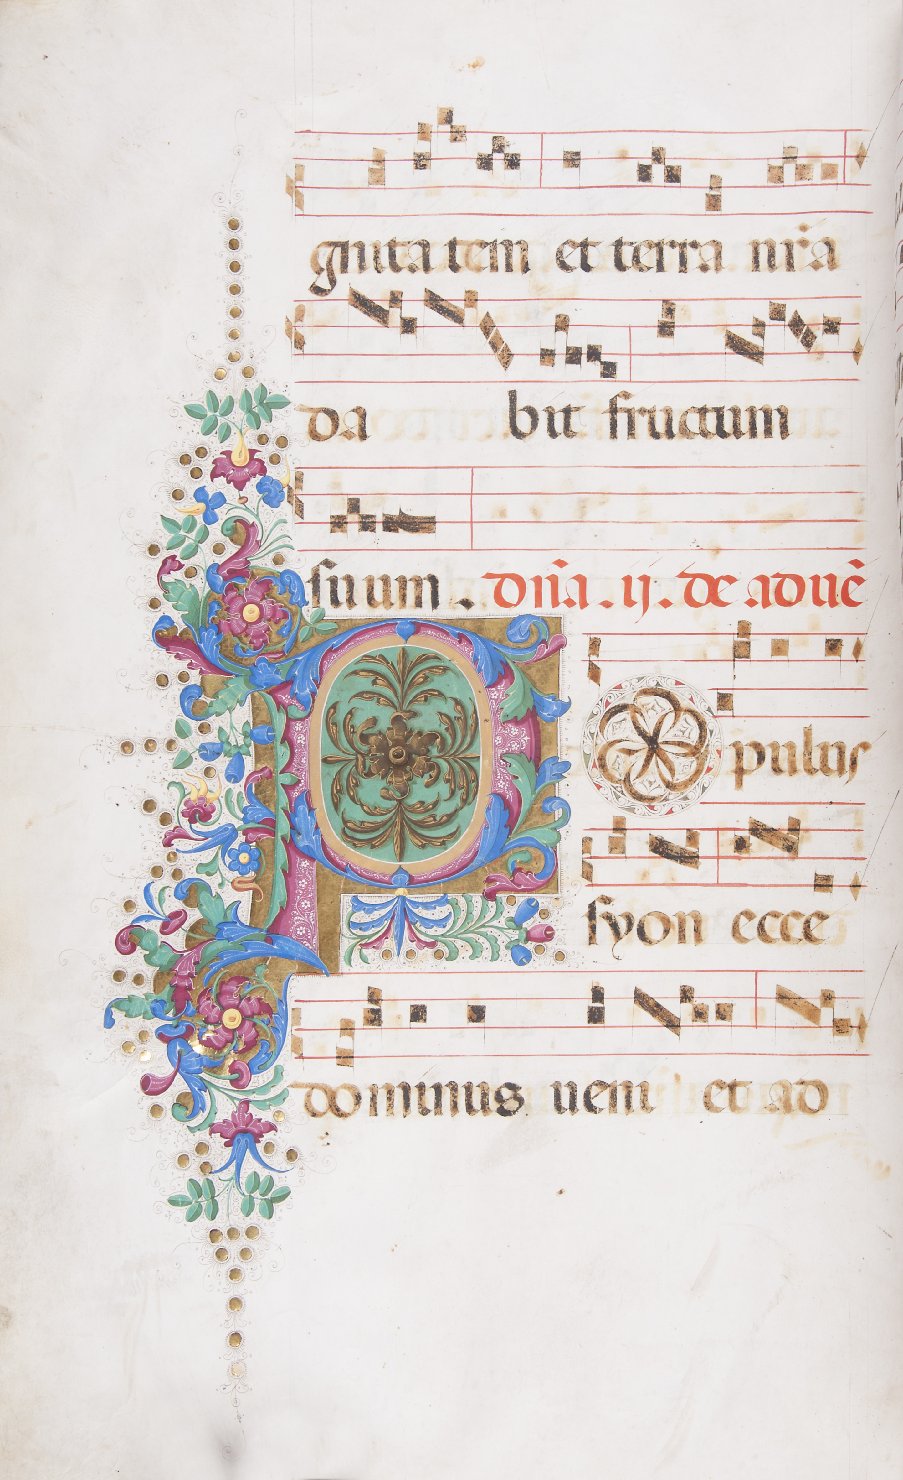 gnitatem et terra nr̄a
da bit fructum
suum . Dn̄ica .ij. de aduē
P O pulus
syon ecce
dominus ueni et ad